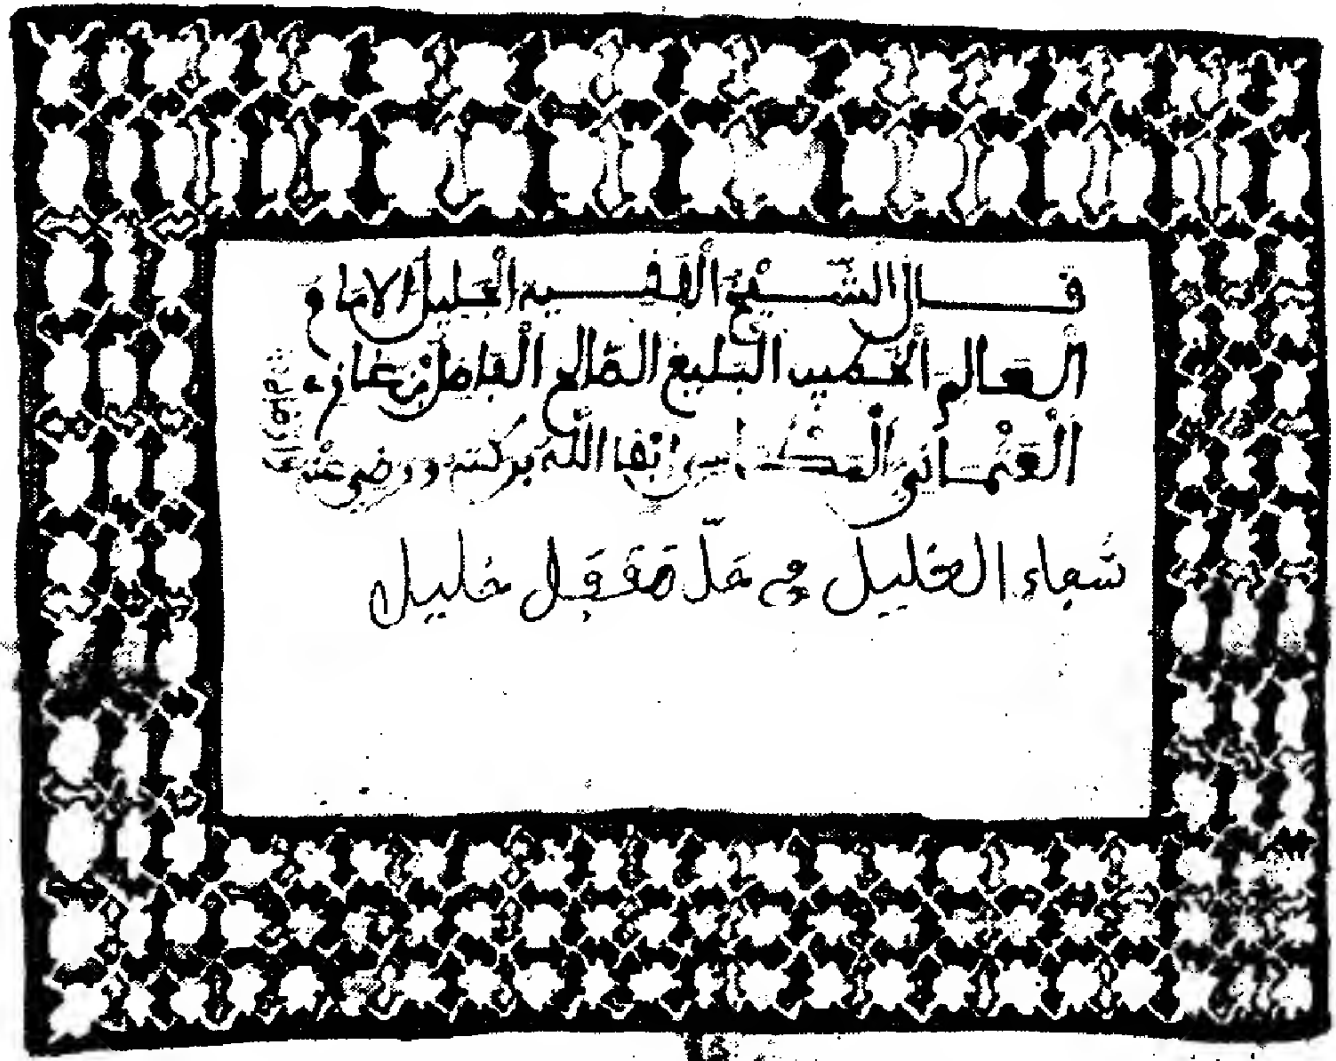 قال الشيخ الفقيه الجليل الامام
العالم البليغ الصالح الفاضل بن غازي
العثماني المكناسي نفعنا الله ببركته ورضي عنه
شفاء الغليل في حل مقفل خليل